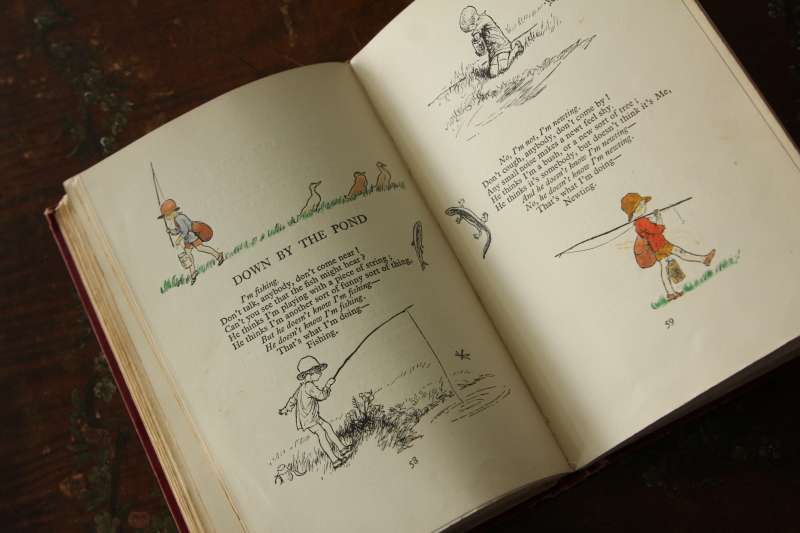 DOWN BY THE POND
I'm fishing.
Don't talk, anybody, don't come near!
Can't you see that the fish might hear?
He thinks I'm playing with a piece of string;
He thinks I'm another sort of funny sort of thing,
But he doesn't know I'm fishing—
He doesn't know I'm fishing.
That's what I'm doing—
Fishing.
58
No, I'm not, I'm newting.
Don't cough, anybody, don't come by!
Any small noise makes a newt feel shy.
He thinks I'm a bush, or a new sort of tree;
He thinks it's somebody, but doesn't think it's Me,
And he doesn't know I'm newting—
No, he doesn't know I'm newting.
That's what I'm doing—
Newting.
59